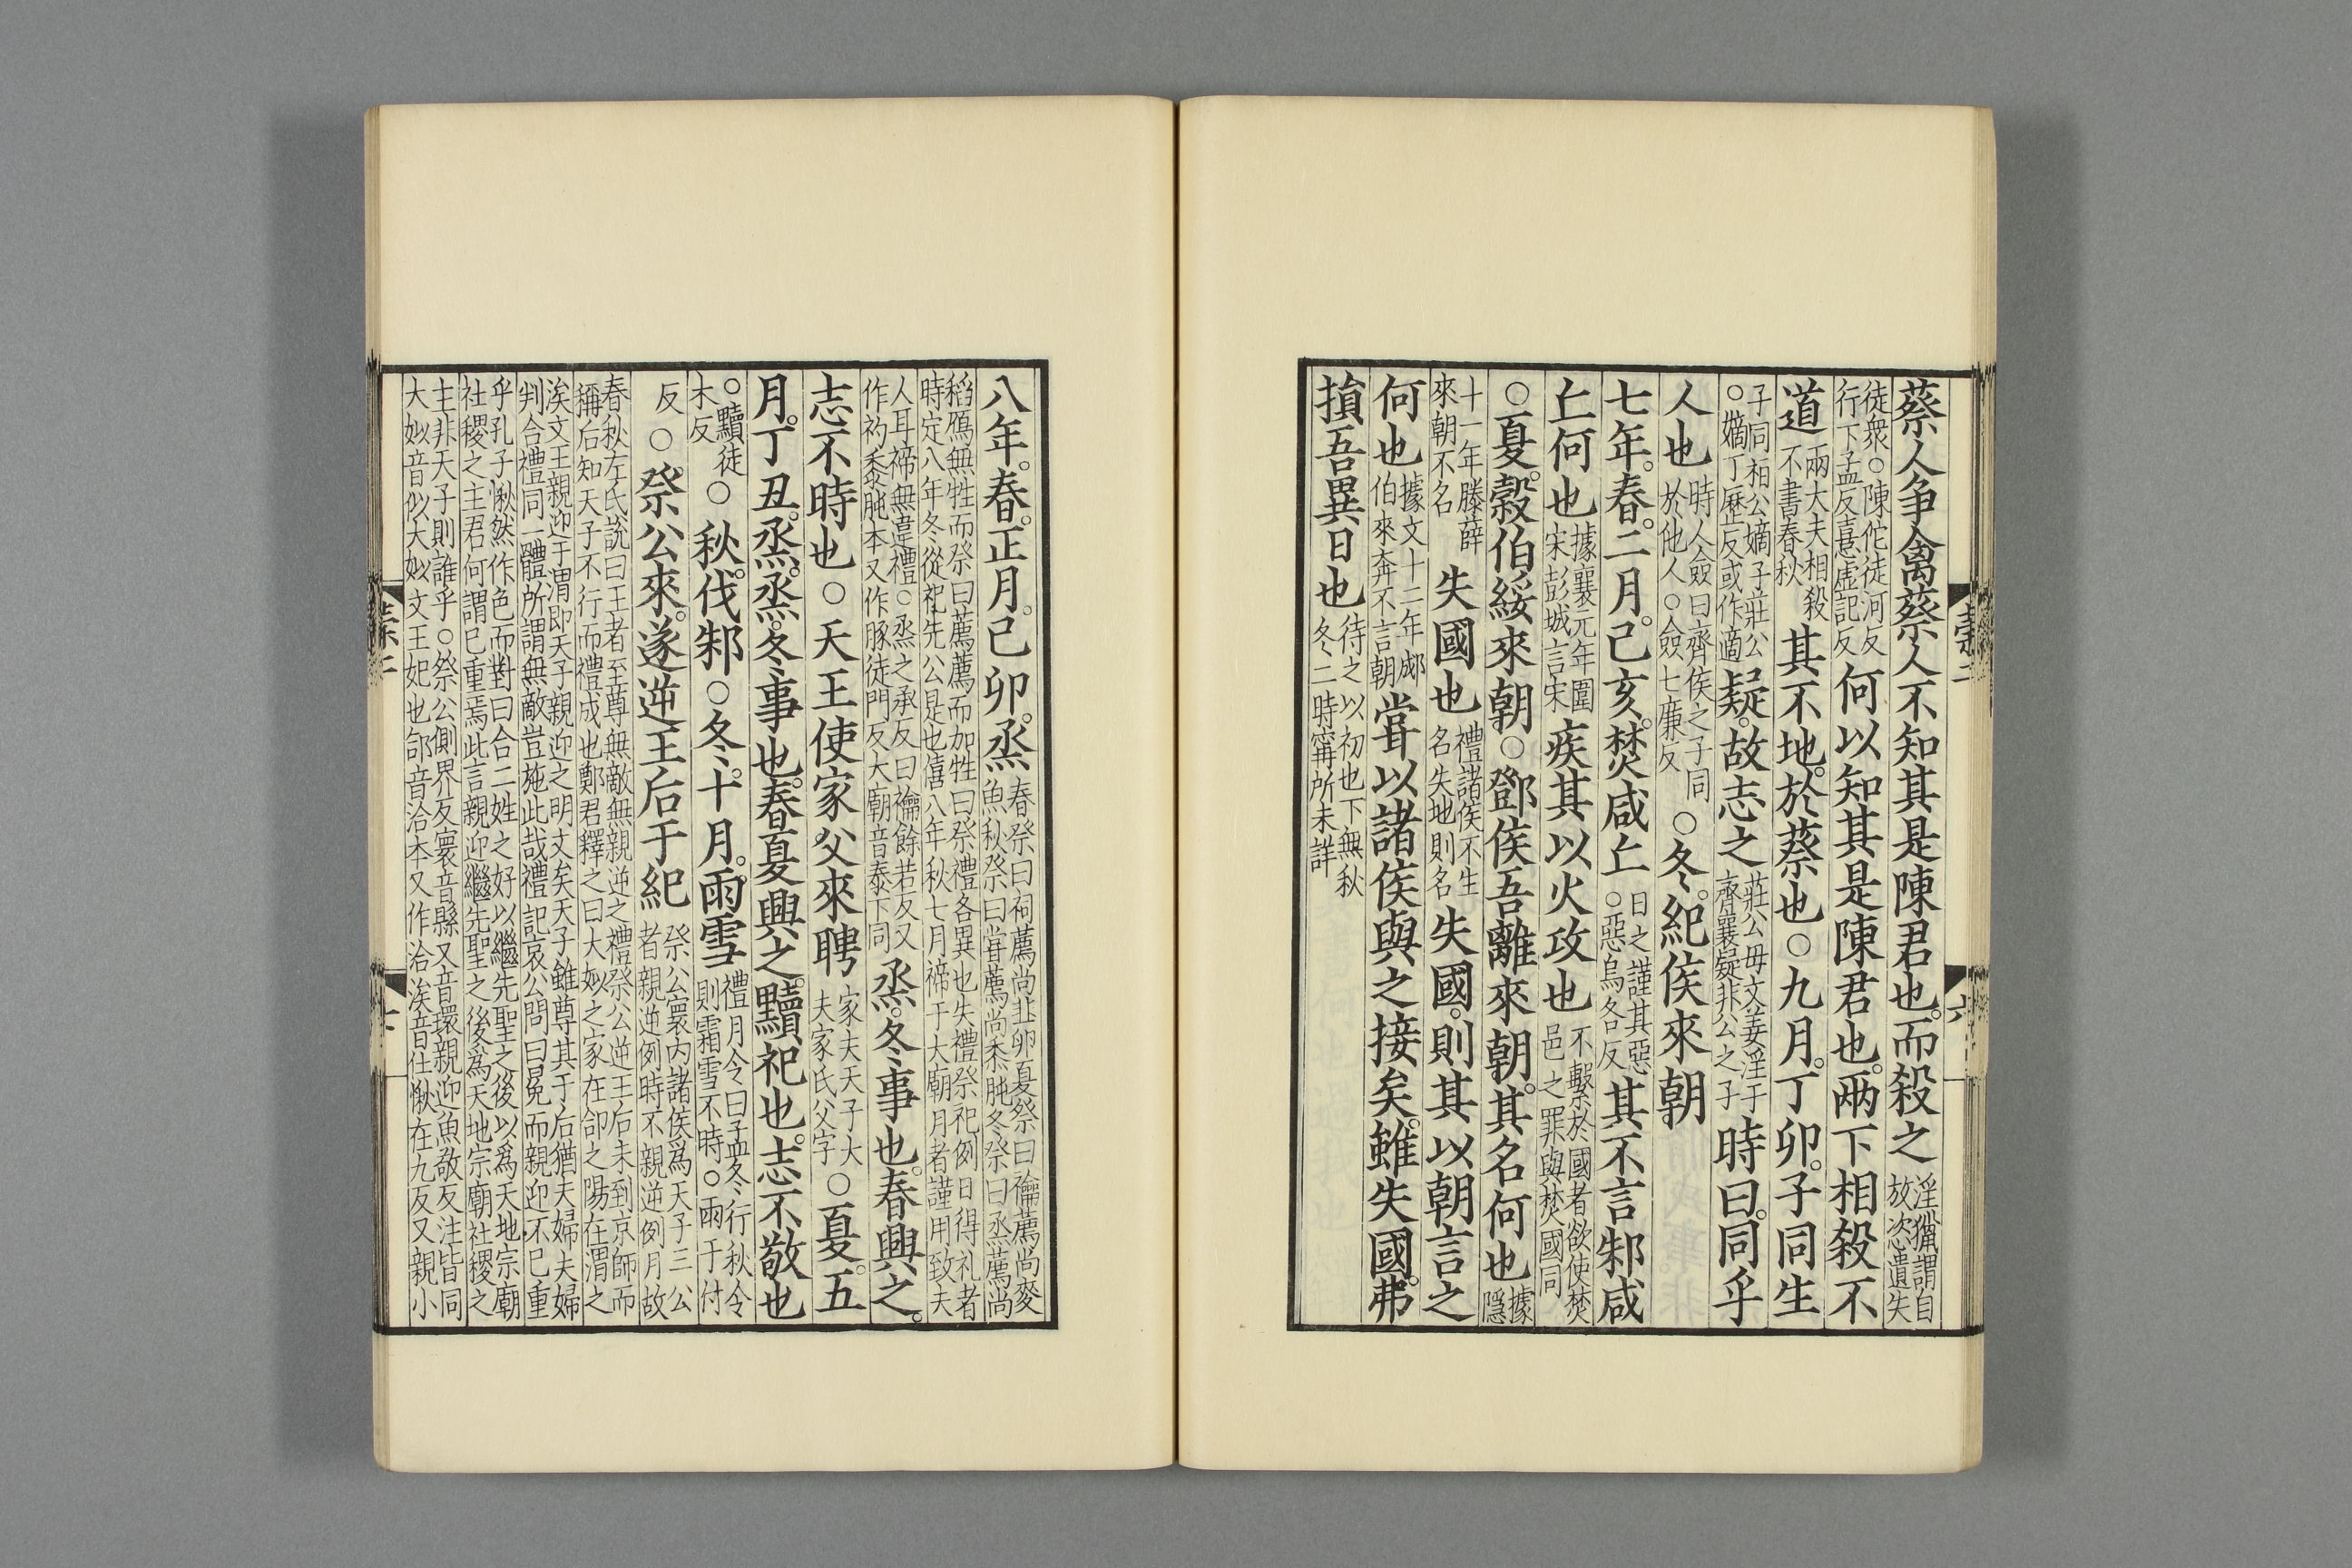 蔡人争禽蔡人不知其是陳君也。而殺之淫獵謂自放恣遺失
徒衆○陳佗徒河反行下孟反憙虛記反何以知其是陳君也。兩下相殺不
道兩大夫相殺不書春秋其不地。於蔡也○九月。丁卯。子同生
子同桓公嫡子莊公○嫡丁歷反或作適疑。故志之莊公母文姜淫于齊襄疑非公之子時曰。同乎
人也時人僉曰齊侯之子同於他人○僉七廉反○冬。紀侯來朝
七年。春。二月。己亥。焚咸丘日之謹其惡○惡烏各反其不言邾咸
丘何也據襄元年圍宋彭城言宋疾其以火攻也不繫於國者欲使焚邑之罪與焚國同
○夏。穀伯綏來朝○鄧侯吾離來朝。其名何也據隱
十一年滕薛來朝不名失國也禮諸侯不生名失地則名失國。則其以朝言之
何也據文十二年郕伯來奔不言朝嘗以諸侯與之接矣。雖失國。弗
損吾異日也待之以初也下無秋冬二時甯所未詳
穀二
六
八年。春。正月。己卯。烝春祭曰祠薦尚韭卵夏祭曰禴薦尚麥魚秋祭曰嘗薦尚黍肫冬祭曰烝薦尚
稻鴈無牲而祭曰薦薦而加牲曰祭禮各異也失禮祭祀例日得礼者時定八年冬從祀先公是也僖八年秋七月禘于大廟月者謹用致夫
人耳禘無違禮○烝之承反曰禴餘若反又作礿黍肫本又作豚徒門反大廟音泰下同烝。冬事也。春興之。
志不時也○天王使家父來聘家父天子大夫家氏父字○夏。五
月。丁丑。烝。烝。冬事也。春夏興之。黷祀也。志不敬也
○黷徒木反○秋。伐邾○冬。十月。雨雪禮月令曰孟冬行秋令則霜雪不時○雨于付
反○祭公來。遂逆王后于紀祭公寰内諸侯爲天子三公者親逆例時不親逆例月故
春秋左氏說曰王者至尊無敵無親逆之禮祭公逆王后未到京師而稱后知天子不行而禮成也鄭君釋之曰大姒之家在郃之陽在渭之
涘文王親迎于渭即天子親迎之明文矣天子雖尊其于后猶夫婦夫婦判合禮同一體所謂無敵豈施此哉禮記哀公問曰冕而親迎不已重
乎孔子愀然作色而對曰合二姓之好以繼先聖之後以爲天地宗廟社稷之主君何謂已重焉此言親迎繼先聖之後爲天地宗廟社稷之
主非天子則誰乎○祭公側界反寰音縣又音環親迎魚敬反注皆同大姒音似大姒文王妃也郃音洽本又作洽涘音仕愀在九反又親小
穀二
七